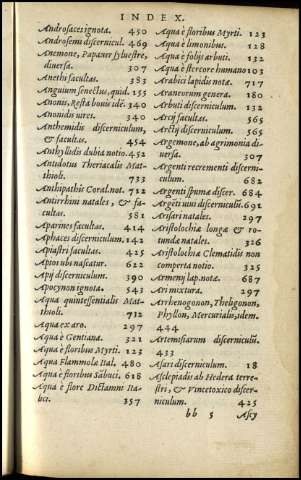 INDEX.
Androsaces ignota. 450
Androsemi discernicul. 469
Anemone, Papauer syluestre,
diuersa. 307
Anethi facultas. 383
Anguium senectus, quid. 155
Anonis, Resta bouis idē. 340
Anonidis uires. 340
Anthemidis discerniculum,
& facultas. 454
Anthyllidis dubia notio. 451
Antidotus Theriacalis Mat
thioli. 733
Antipathis Coral.not. 712
Antirrhini natales, & fa-
cultas. 581
Aparines facultas. 414
Aphaces discerniculum. 142
Apiastri facultas. 425
Apios ubi nascatur. 622
Apij discerniculum. 390
Apocynon ignota. 543
Aqua quintessentialis Mat
thioli. 712
Aqua ex aro. 297
Aqua è Gentiana. 321
Aqua è floribus Myrti. 123
Aqua Flammola Ital. 480
Aqua è floribus Sābuci. 618
Aqua è flore Dictamni Ita-
lici. 357
Aqua è floribus Myrti. 123
Aqua è limonibus. 128
Aqua è folijs arbuti. 132
Aqua è stercore humano 103
Arabici lapidis nota. 717
Araneorum genera. 180
Arbuti discerniculum. 132
Arcij facultas. 565
Arctij discerniculum. 565
Argemone, ab agrimonia di
uersa. 307
Argenti recrementi discerni-
culum. 682
Argenti spumæ discer. 684
Argēti uiui discerniculū. 691
Arisari natales. 297
Aristolochiæ longæ & ro-
tundæ natales. 326
Aristolochia Clematidis non
comperta notio. 325
Armenij lap.nota. 687
Ari mixtura. 297
Arrhenogonon, Thelygonon,
Phyllon, Mercurialis, idem.
444
Artemisiarum discerniculū.
433
Asari discerniculum. 18
Asclepiadis ab Hedera terre-
stri, & Vincetoxico discer-
niculum. 425
bb 5 Ascy